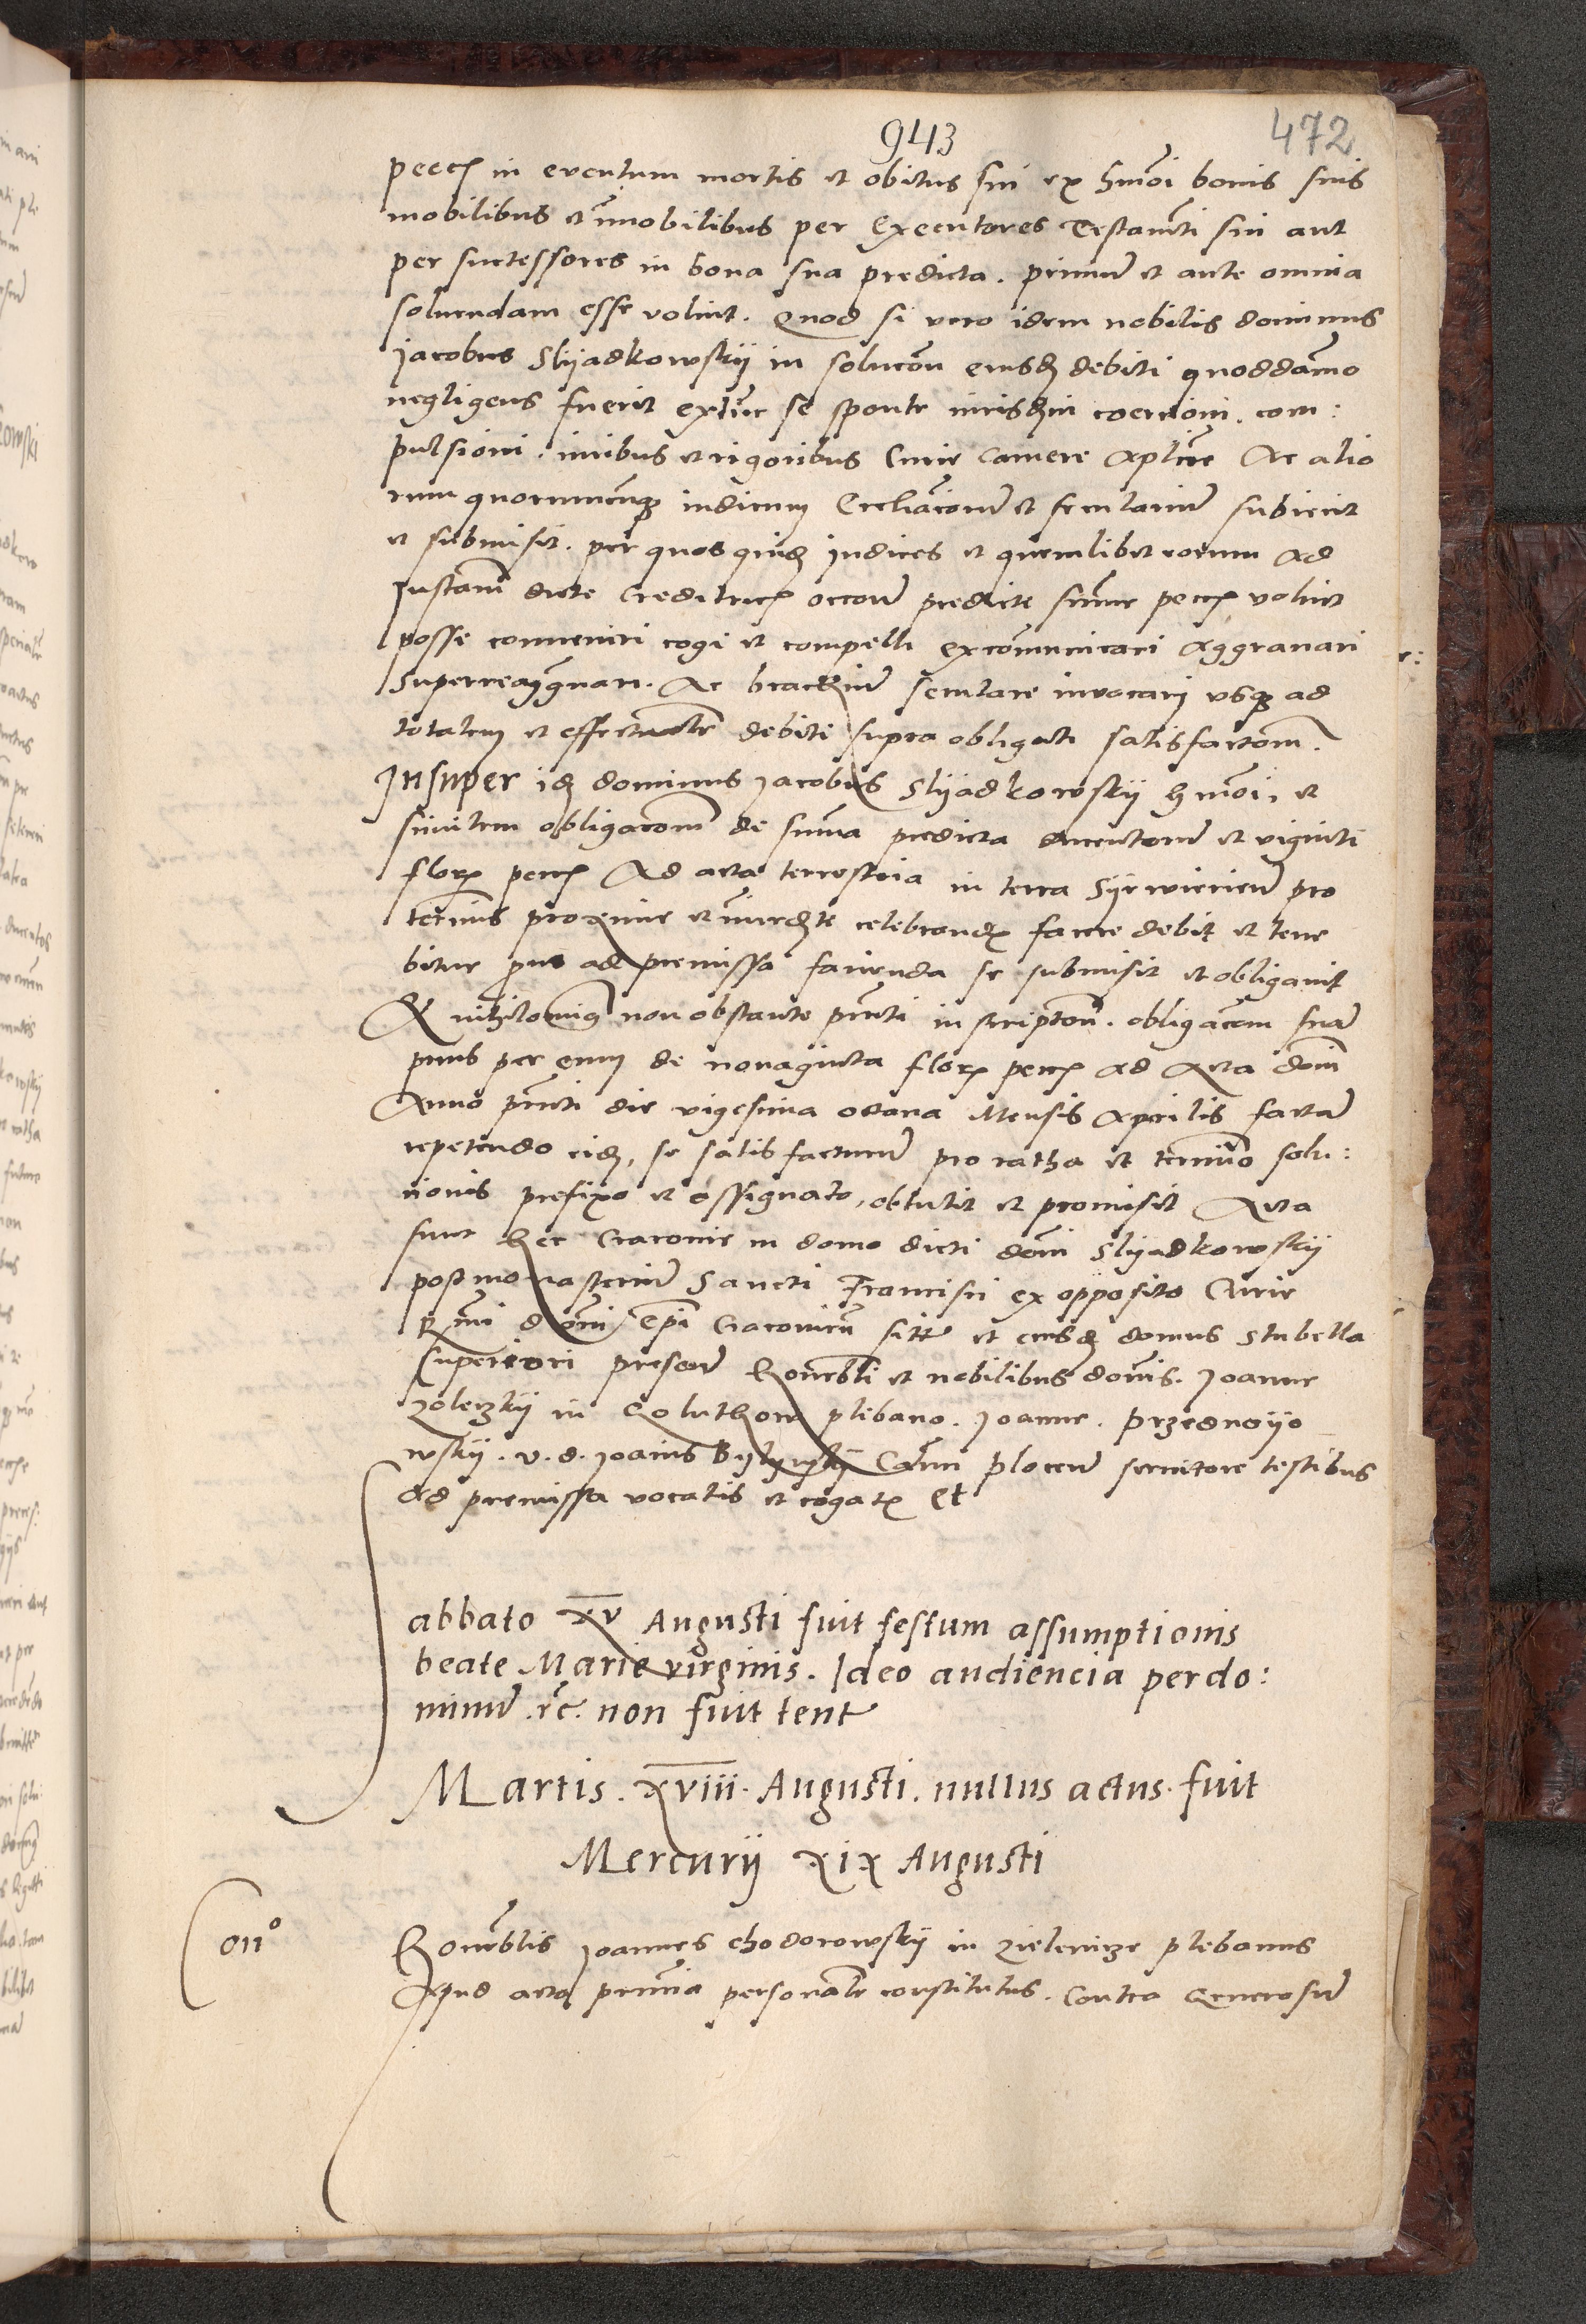 943
472
pecc in eventum mortis et obitus sui ex hmōi bonis suis
mobilibus et īmobilibus per Executores Testamēti sui aut
per successores in bona sua predicta. primū et ante omnia
soluendam esse voluit. Quod si vero idem nobilis dominus
Jacobus Slyadkowskij in solucōn eiusdē debiti quoddāmo
negligens fuerit extūc se sponte iurisdm coercioni. com:
pulsioni. iuribus et rigoribus Curie Camere Aplice Ac alio
rum quorumcūq iudicum Ecclīasticorū et secularium subiecit
et submisit. per quos quidē Judices et quemlibet eorum Ad
Instanm dicte Creditricis occone predicte sūme pecc voluit
posse conueniri cogi et compelli excōmunicari Aggrauari
Superreaggrauari. Ac brachiū seculare inuocari vsq ad
totalem et effectualē debiti supra obligati satisfactionem.
Insuper idē dominus Jacobus Slyadkowskij hmōi, et
similem obligaconem de sūma predicta ducentorū et viginti
florx pecc Ad acta terrestria in terra Syrwicien pro
terminis proxime et īmediate celebrandx facere debit et tene
bitur quo ad premissa facienda se submisit et obligauit
Et nihilomīq non obstante prnti inscriptione. obligācom suā
prius per eum de nonaginta florx pecc ad Acta dōm
Anno prnti die vigesima octaua Mensis Aprilis factā
repetendo eidē, se satisfacturū pro ratha et termino solu:
cionis prefixo et assignato, obtulit et promisit Acta
sunt hec Cracouie in domo dicti dōni Slyadkowskij
post monasteriū Sancti Francisci ex opposito Curie
Rmi dōmi epī Cracouien sitte et eiusdē domus stubella
superiori presentibus honorabli et nobilibus dōnis. Joanne
Zoleczkij in Goluchow plebano. Joanne. Przedwoyo
wskij. v. d. Joannis Bylynskij Cānci plocen seruitore testibus
Ad premissa vocatis et rogatx Et
abbato xv Augusti fuit festum assumptionis
beate Marie virginis. Ideo audiencia per do:
minū .rc. non fuit tent
Martis. xviii. Augusti. nullus actus. fuit
Mercurij xix Augusti
Con°
Honorablis Joannes Chodorowskij in Zielenicze plebanus
Apud acta prntia personalr constitutus. Contra Generosū